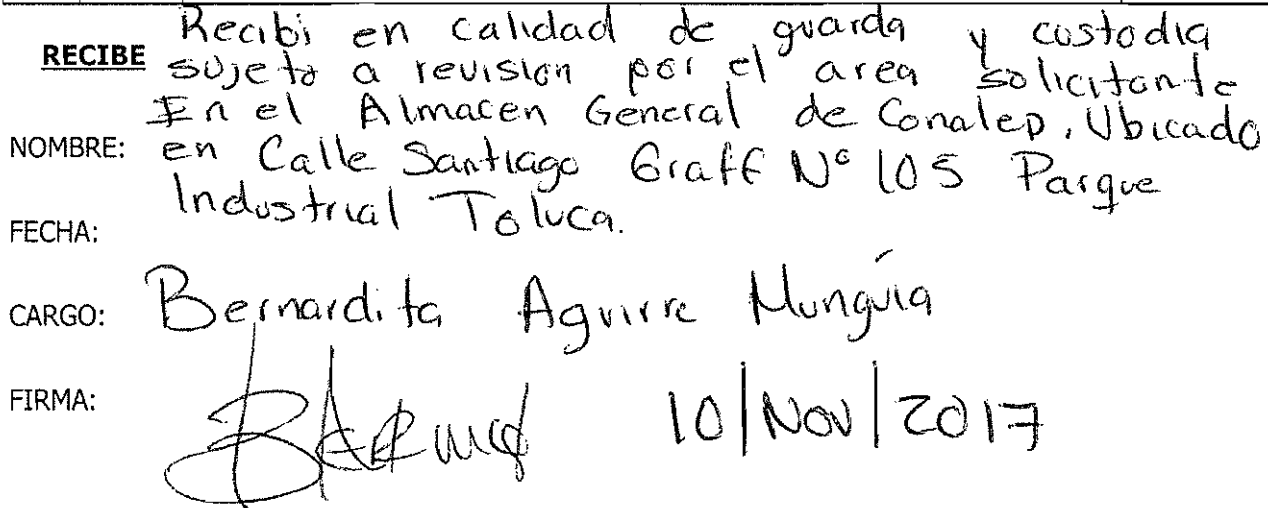 Recibi en calidad de guarda y custodia
RECIBE sujeto a revision por el area solicitante
En el Almacen General de Conalep. Ubicado
NOMBRE: en Calle Santiago Graff N° 105 Parque
Industrial Toluca.
FECHA:
CARGO: Bernardita Aguirre Munguía
FIRMA: 10/Nov/2017